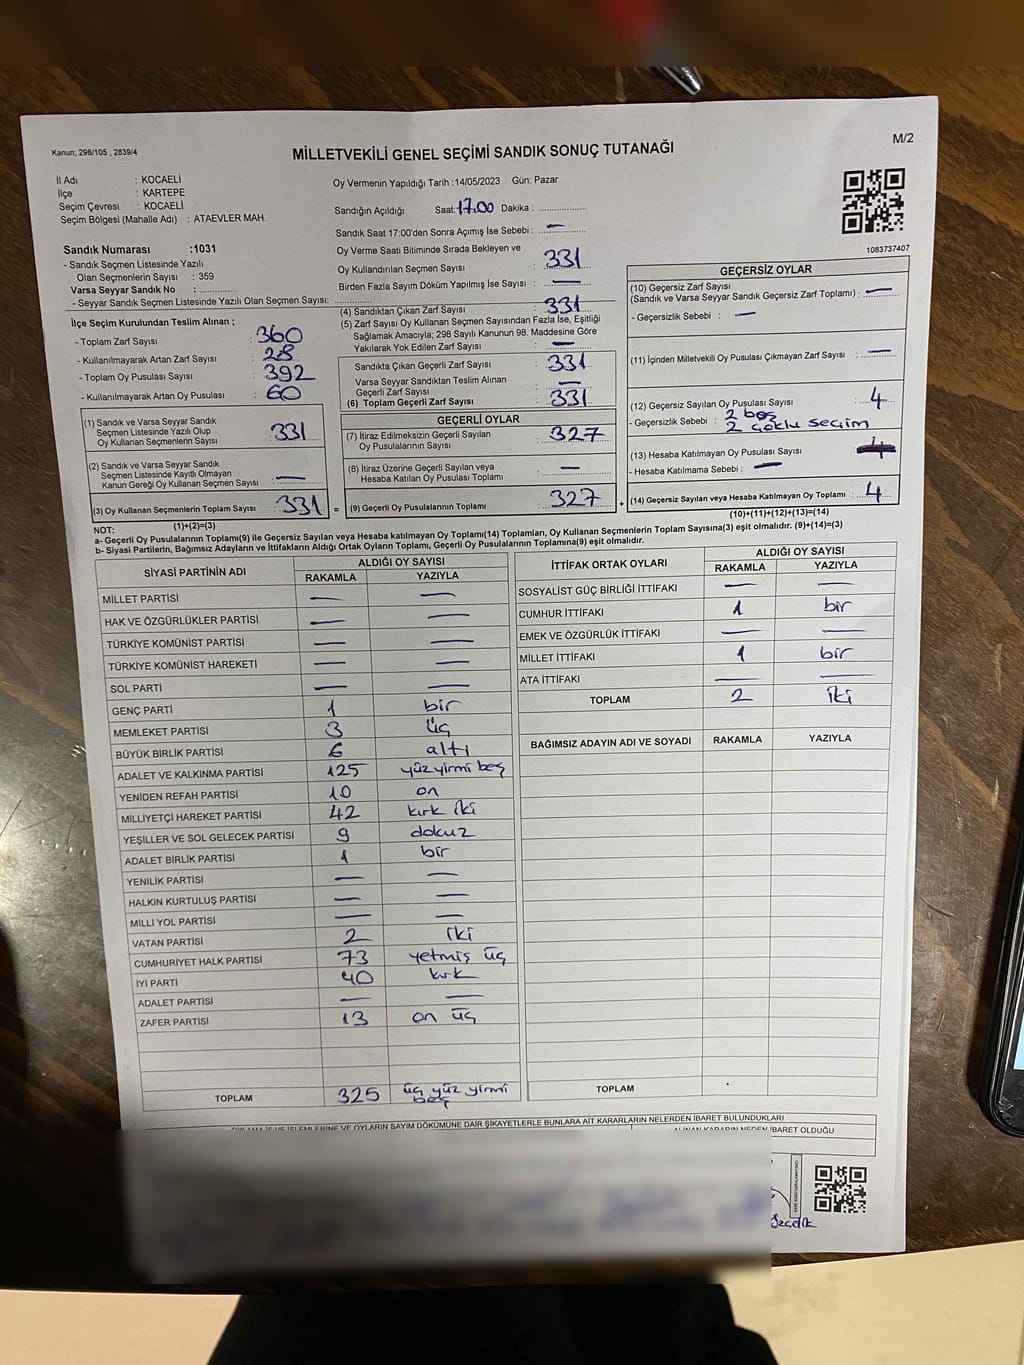 Kanun; 298/105 , 2839/4
M/2
MİLLETVEKİLİ GENEL SEÇİMİ SANDIK SONUÇ TUTANAĞI
İl Adı : KOCAELİ
İlçe : KARTEPE
Seçim Çevresi : KOCAELİ
Seçim Bölgesi (Mahalle Adı) : ATAEVLER MAH.
Sandık Numarası :1031
- Sandık Seçmen Listesinde Yazılı
Olan Seçmenlerin Sayısı : 359
Varsa Seyyar Sandık No : ................
- Seyyar Sandık Seçmen Listesinde Yazılı Olan Seçmen Sayısı: ................
Oy Vermenin Yapıldığı Tarih :14/05/2023 Gün: Pazar
Sandığın Açıldığı Saat: 17.00 Dakika : ................
Sandık Saat 17:00'den Sonra Açımış İse Sebebi : —
Oy Verme Saati Bitiminde Sırada Bekleyen ve
Oy Kullandırılan Seçmen Sayısı : 331
Birden Fazla Sayım Döküm Yapılmış İse Sayısı : —
1083737407
İlçe Seçim Kurulundan Teslim Alınan ;
- Toplam Zarf Sayısı : 360
- Kullanılmayarak Artan Zarf Sayısı : 28
- Toplam Oy Pusulası Sayısı : 392
- Kullanılmayarak Artan Oy Pusulası : 60
(1) Sandık ve Varsa Seyyar Sandık
Seçmen Listesinde Yazılı Olup
Oy Kullanan Seçmenlerin Sayısı : 331
(2) Sandık ve Varsa Seyyar Sandık
Seçmen Listesinde Kayıtlı Olmayan
Kanun Gereği Oy Kullanan Seçmen Sayısı : —
(3) Oy Kullanan Seçmenlerin Toplam Sayısı : 331
(1)+(2)=(3)
(4) Sandıktan Çıkan Zarf Sayısı : 331
(5) Zarf Sayısı Oy Kullanan Seçmen Sayısından Fazla İse, Eşitliği
Sağlamak Amacıyla; 298 Sayılı Kanunun 98. Maddesine Göre
Yakılarak Yok Edilen Zarf Sayısı : —
Sandıkta Çıkan Geçerli Zarf Sayısı : 331
Varsa Seyyar Sandıktan Teslim Alınan
Geçerli Zarf Sayısı : —
(6) Toplam Geçerli Zarf Sayısı : 331
GEÇERLİ OYLAR
(7) İtiraz Edilmeksizin Geçerli Sayılan
Oy Pusulalarının Sayısı : 327
(8) İtiraz Üzerine Geçerli Sayılan veya
Hesaba Katılan Oy Pusulası Toplamı : —
= (9) Geçerli Oy Pusulalarının Toplamı : 327 +
GEÇERSİZ OYLAR
(10) Geçersiz Zarf Sayısı
(Sandık ve Varsa Seyyar Sandık Geçersiz Zarf Toplamı) : —
- Geçersizlik Sebebi : —
(11) İçinden Milletvekili Oy Pusulası Çıkmayan Zarf Sayısı : —
(12) Geçersiz Sayılan Oy Pusulası Sayısı : 4
- Geçersizlik Sebebi : 2 boş
2 çoklu seçim
(13) Hesaba Katılmayan Oy Pusulası Sayısı :
- Hesaba Katılmama Sebebi : —
(14) Geçersiz Sayılan veya Hesaba Katılmayan Oy Toplamı : 4
(10)+(11)+(12)+(13)=(14)
NOT:
a- Geçerli Oy Pusulalarının Toplamı(9) ile Geçersiz Sayılan veya Hesaba katılmayan Oy Toplamı(14) Toplamları, Oy Kullanan Seçmenlerin Toplam Sayısına(3) eşit olmalıdır. (9)+(14)=(3)
b- Siyasi Partilerin, Bağımsız Adayların ve İttifakların Aldığı Ortak Oyların Toplamı, Geçerli Oy Pusulalarının Toplamına(9) eşit olmalıdır.
SİYASİ PARTİNİN ADI ALDIĞI OY SAYISI
RAKAMLA YAZIYLA
MİLLET PARTİSİ — —
HAK VE ÖZGÜRLÜKLER PARTİSİ — —
TÜRKİYE KOMÜNİST PARTİSİ — —
TÜRKİYE KOMÜNİST HAREKETİ — —
SOL PARTİ — —
GENÇ PARTİ 1 bir
MEMLEKET PARTİSİ 3 üç
BÜYÜK BİRLİK PARTİSİ 6 altı
ADALET VE KALKINMA PARTİSİ 125 yüz yirmi beş
YENİDEN REFAH PARTİSİ 10 on
MİLLİYETÇİ HAREKET PARTİSİ 42 kırk iki
YEŞİLLER VE SOL GELECEK PARTİSİ 9 dokuz
ADALET BİRLİK PARTİSİ 1 bir
YENİLİK PARTİSİ — —
HALKIN KURTULUŞ PARTİSİ — —
MİLLİ YOL PARTİSİ — —
VATAN PARTİSİ 2 iki
CUMHURİYET HALK PARTİSİ 73 yetmiş üç
İYİ PARTİ 40 kırk
ADALET PARTİSİ — —
ZAFER PARTİSİ 13 on üç
TOPLAM 325 üç yüz yirmi
beş
İTTİFAK ORTAK OYLARI ALDIĞI OY SAYISI
RAKAMLA YAZIYLA
SOSYALİST GÜÇ BİRLİĞİ İTTİFAKI — —
CUMHUR İTTİFAKI 1 bir
EMEK VE ÖZGÜRLÜK İTTİFAKI — —
MİLLET İTTİFAKI 1 bir
ATA İTTİFAKI — —
TOPLAM 2 iki
BAĞIMSIZ ADAYIN ADI VE SOYADI RAKAMLA YAZIYLA
TOPLAM
OYLAMA İŞ VE İŞLEMLERİNE VE OYLARIN SAYIM DÖKÜMÜNE DAİR ŞİKAYETLERLE BUNLARA AİT KARARLARIN NELERDEN İBARET BULUNDUKLARI
ALINAN KARARIN NEDEN İBARET OLDUĞU